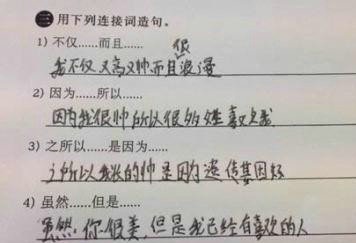 三 用下列连接词造句。
1) 不仅......而且......
我不仅又高又帅而且很浪漫
2) 因为......所以......
因为我很帅所以很多姓喜欢我
3) 之所以......是因为......
之所以我长的帅是因为遗传基因好
4) 虽然......但是......
虽然.你很美,但是我已经有喜欢的人